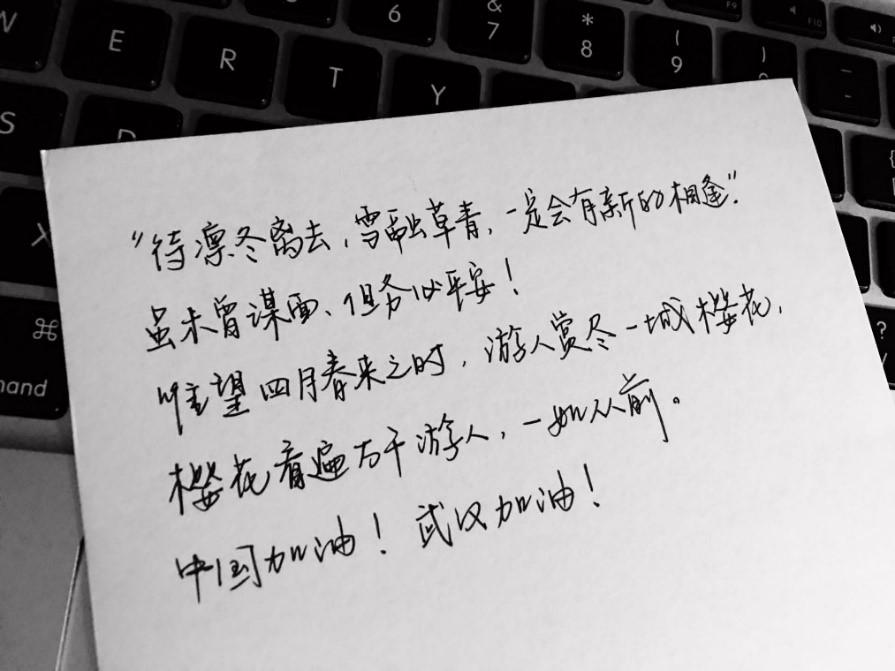 W E R T Y 6 & 7 * 8 ( 9 ) F9 F10
S
X
⌘
mand
"待凛冬离去,雪融草青,一定会有新的相逢".
虽未曾谋面、但务必平安!
唯望四月春来之时,游人赏尽一城樱花,
樱花看遍万千游人,一如从前。
中国加油!武汉加油!